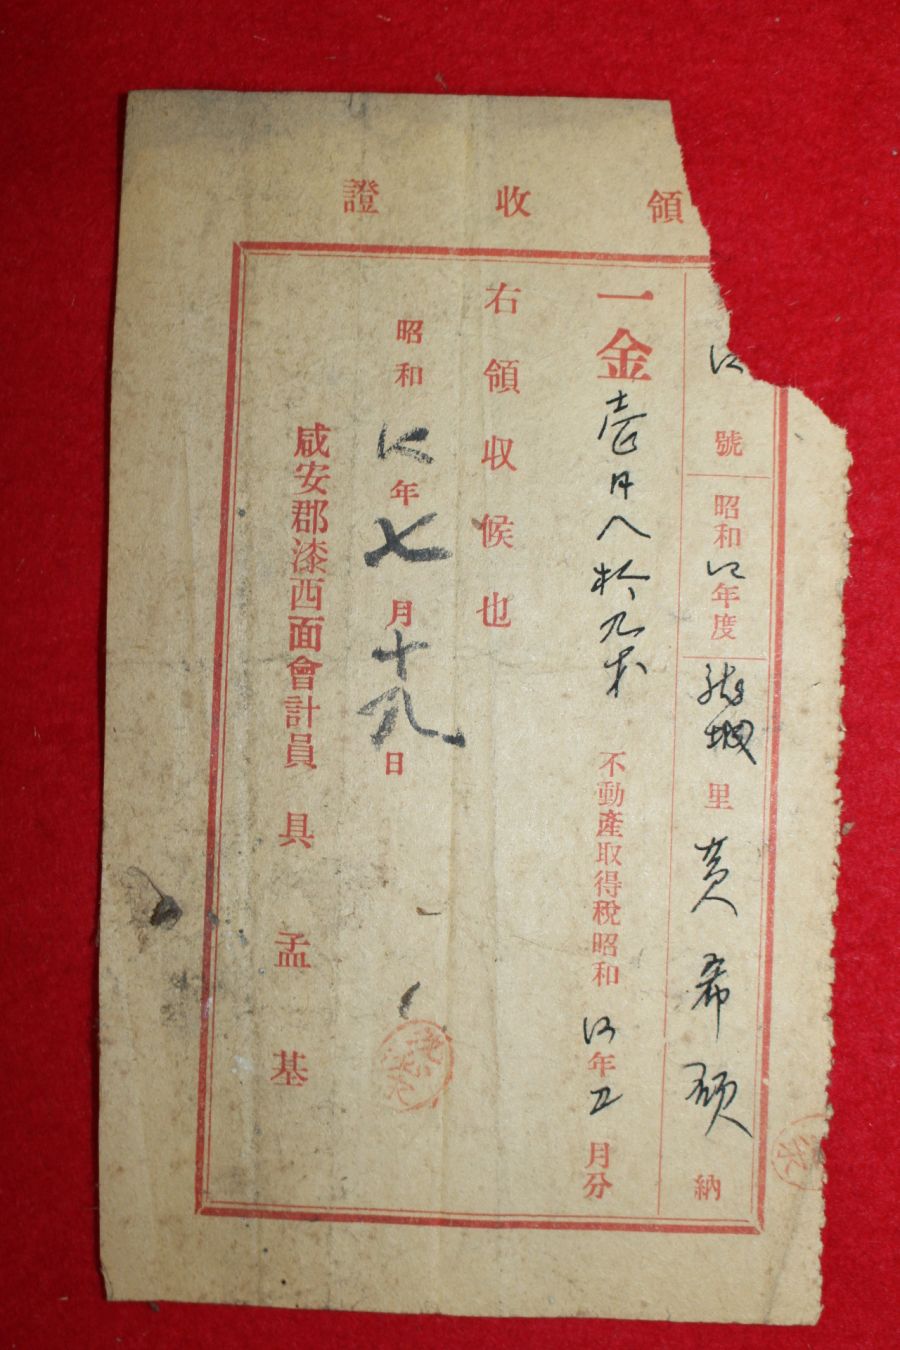 領收證
號 昭和 年度 里 黃 希 碩 納
一金壹円八拾九戔 不動產取得稅昭和 年五月分
右領収候也
昭和 年七月十八日
咸安郡漆西面會計員 具孟基